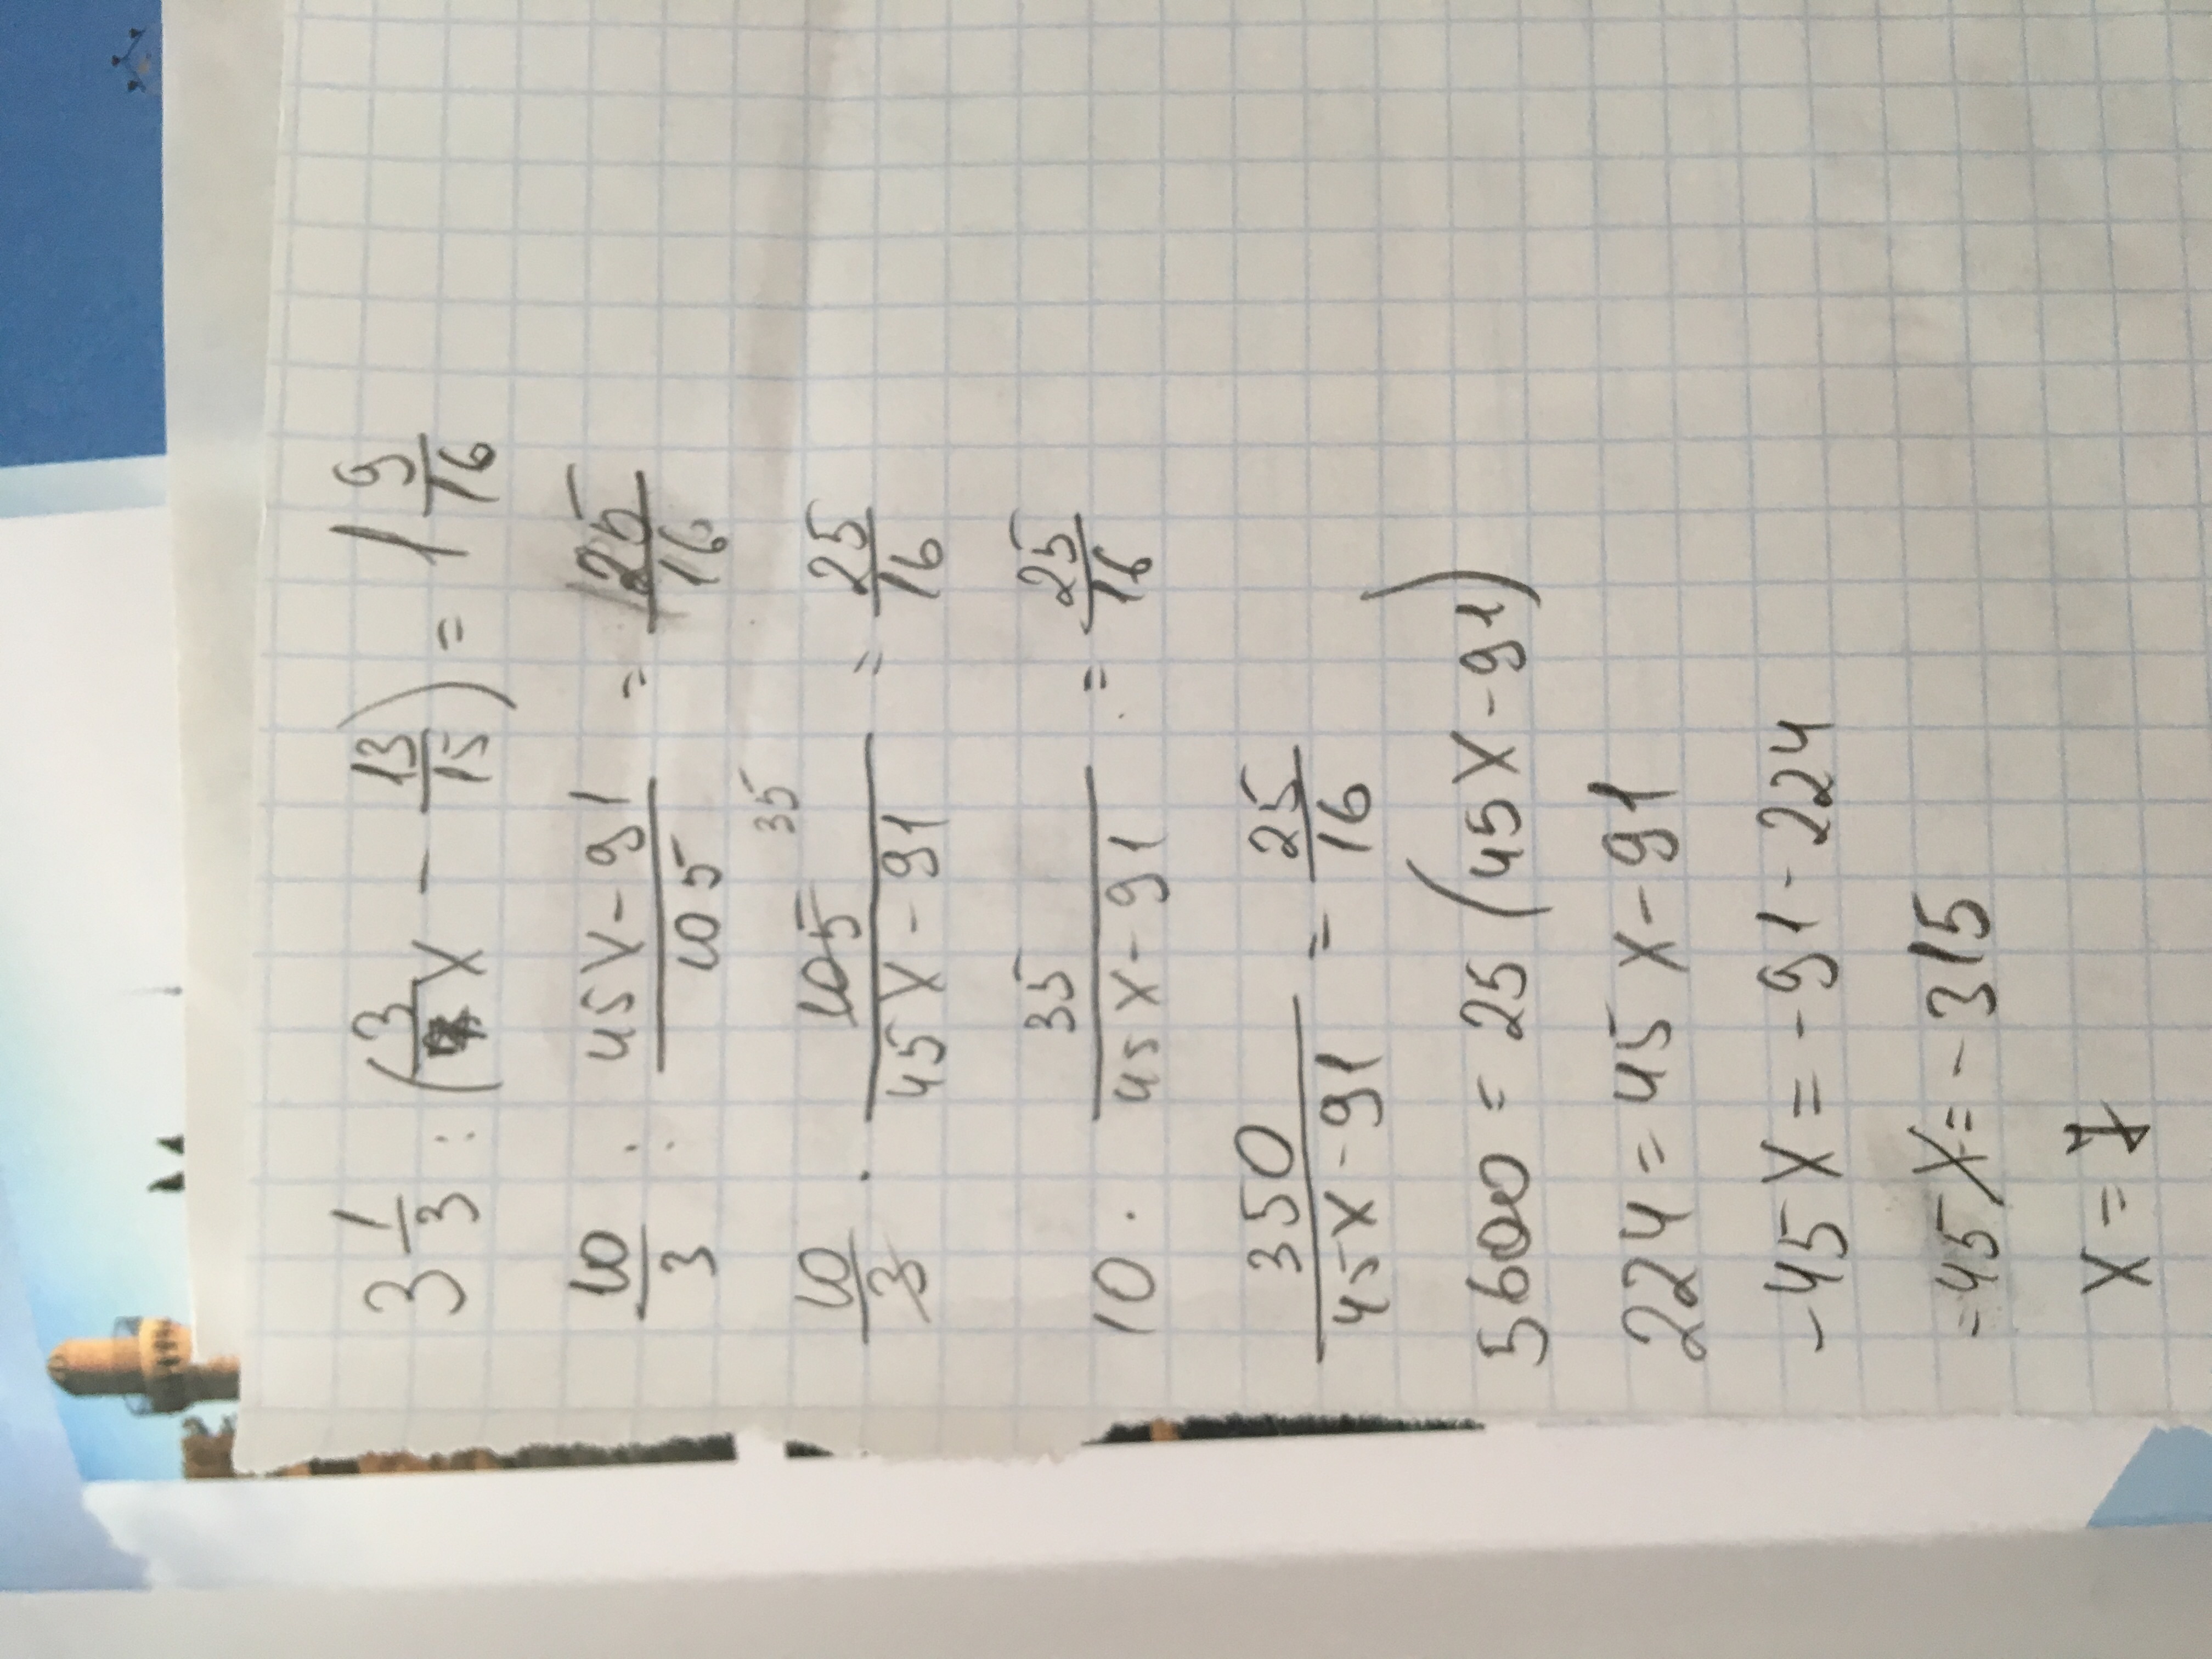 3 1/3 : (3/7 x - 13/15) = 1 9/16
10/3 : 45x-91/105 = 25/16
35
10/3 · 105/45x-91 = 25/16
10 · 35/45x-91 = 25/16
350/45x-91 = 25/16
5600 = 25 (45x-91)
224 = 45x-91
-45x = -91-224
-45x = -315
x = 7